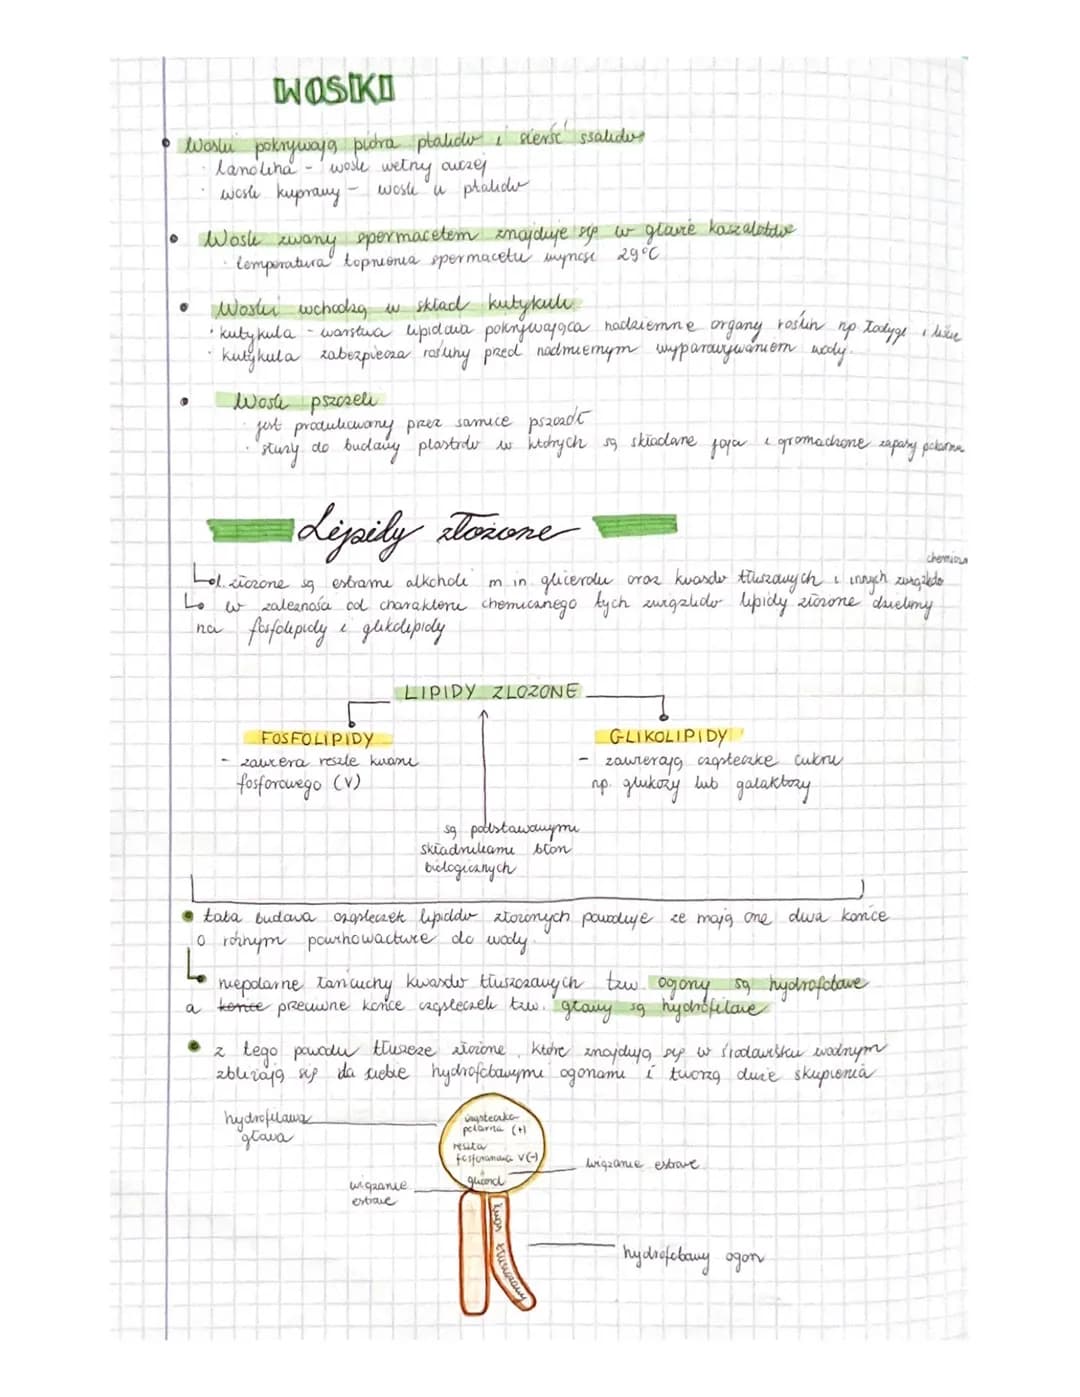 WOSKI
Woski pokrywają pióra ptaków i sierść ssaków
lanolina - wosk wełny owczej
wosk kuprowy - wosk u ptaków
Wosk zwany spermacetem znajduje się w głowie kaszalotów
temperatura topnienia spermacetu wynosi 29°C
Woski wchodzą w skład kutykuli
kutykula - warstwa lipidowa pokrywająca nadziemne organy roślin np łodygę i liście
kutykula zabezpiecza rośliny przed nadmiernym wyparowywaniem wody.
Wosk pszczeli
jest produkowany przez samice pszczół
służy do budowy plastrów w których są składane jaja i gromadzone zapasy pokarmu
Lipidy złożone
chemiczn
l. złożone są estrami alkoholi m.in. glicerolu oraz kwasów tłuszczowych i innych związków
w zależności od charakteru chemicznego tych związków lipidy złożone dzielimy
na fosfolipidy i glikolipidy
LIPIDY ZLOZONE
FOSFOLIPIDY
- zawiera resztę kwasu
fosforowego (V)
GLIKOLIPIDY
- zawierają cząsteczkę cukru
np. glukozy lub galaktozy
są podstawowymi
składnikami błon
biologicznych
taka budowa cząsteczek lipidów złożonych powoduje że mają one dwa końce
o różnym powinowactwie do wody.
niepolarne łańcuchy kwasów tłuszczowych tzw. ogony są hydrofobowe
a końce przeciwne końce cząsteczek tzw. głowy są hydrofilowe
z tego powodu tłuszcze złożone, które znajdują się w środowisku wodnym
zbliżają się do siebie hydrofobowymi ogonami i tworzą duże skupienia
hydrofilowa
głowa
cząsteczka
polarna (+)
reszta
fosforanowa V(-)
glicerol
wiązanie estrowe
wiązanie
estrowe
kwas tłuszczowy
hydrofobowy ogon